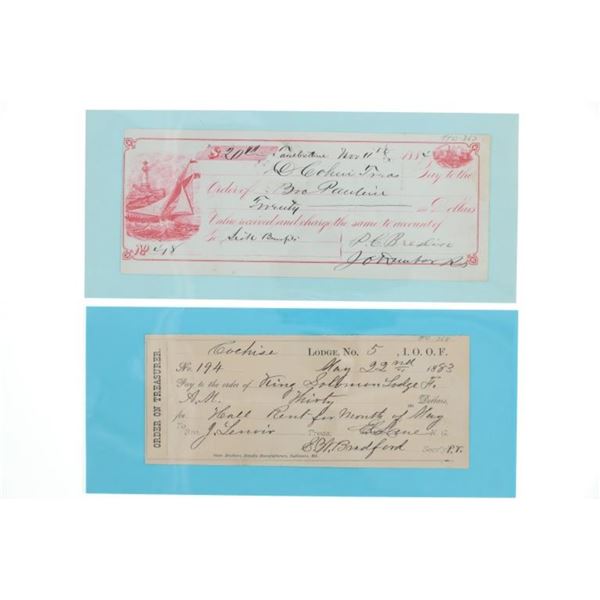 $20.00 Tombstone Nov 11th 1882
Cohen Treas Pay to the
Order of Bro Pauline
Twenty Dollars
Value received and charge the same to account of
To Sick Benefits
No 218
ORDER ON TREASURER.
Cochise LODGE, NO. 5, I. O. O. F.
No. 194 May 22nd 1883
Pay to the order of King Solomon Lodge F.
A.M. Thirty Dollars,
for Hall Rent for Month of May
To Bro. J. Lenoir Treas. N. G.
S.W. Bradford Sec'y P.T.